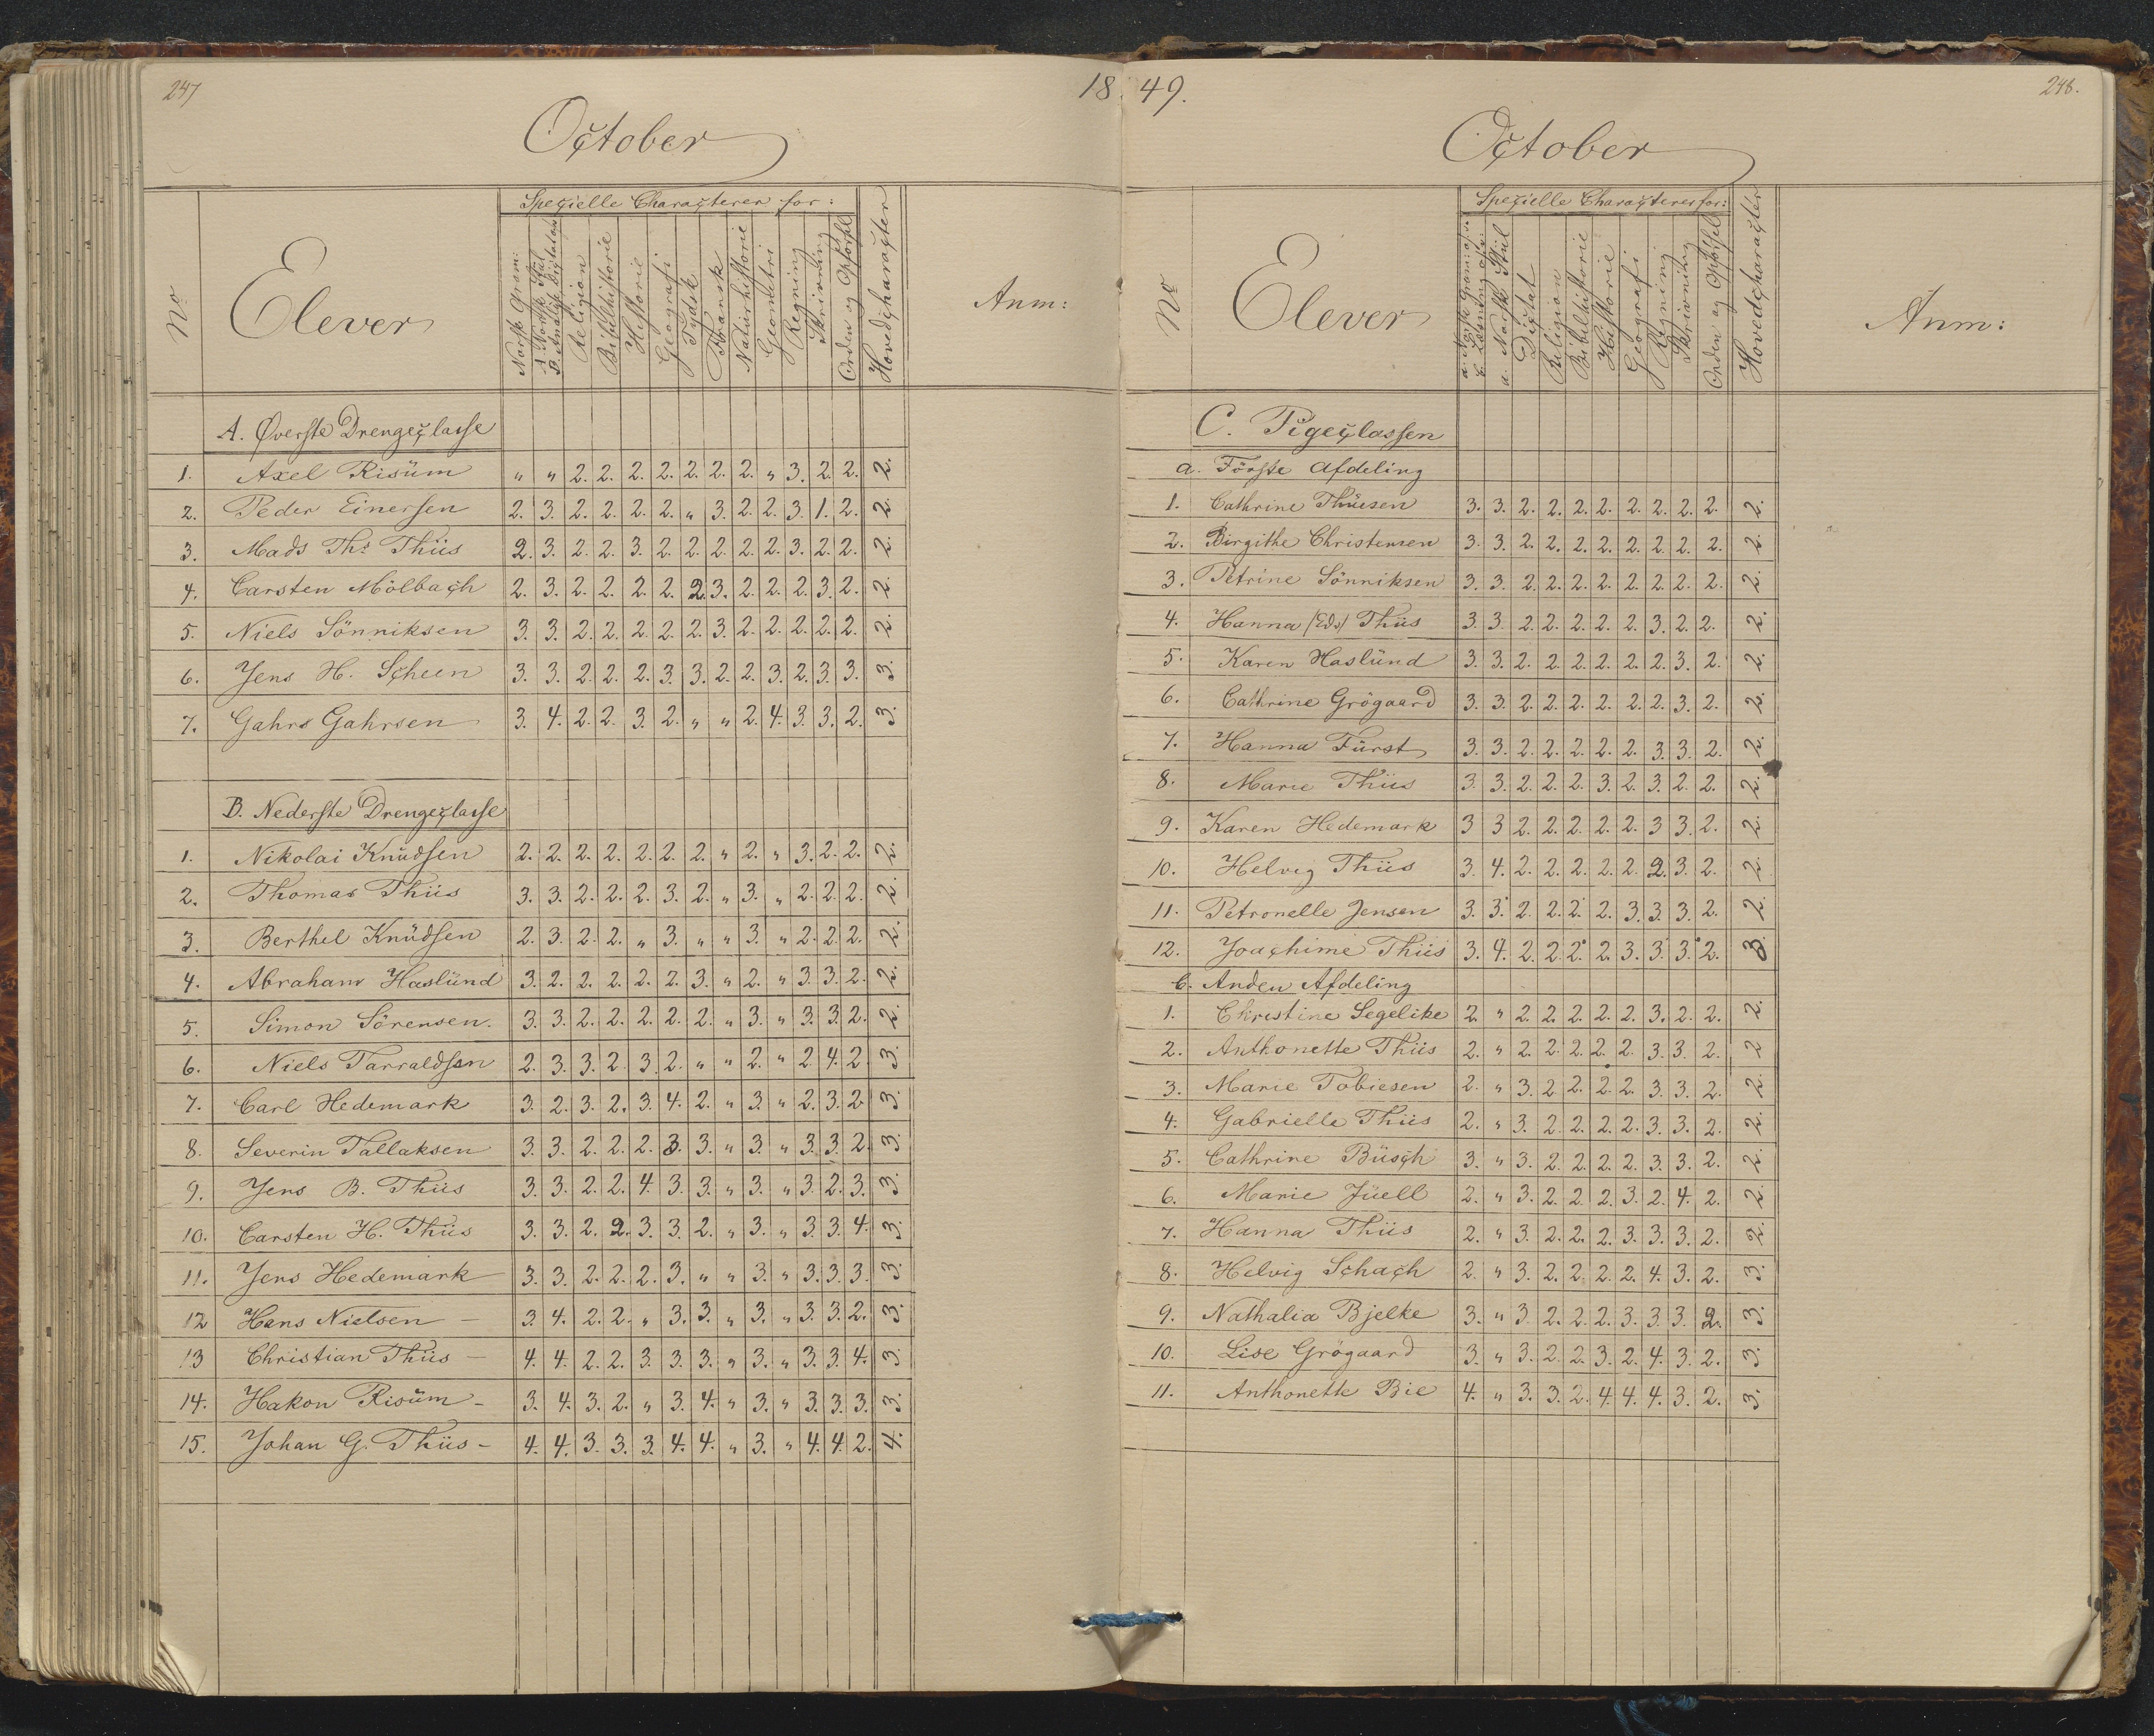 247
18
October
No
Elever
Specielle Characterer for:
Norsk Gram:
A Norsk Stiil
B. Analyse Dictat
Religion
Bibelhistorie
Historie
Geografi
Tydsk
Fransk
Naturhistorie
Geometri
Regning
Skrivning
Orden og Opførsel
Hovedcharacter
Anm:
A. Øverste Drengeclasse
1. Axel Risüm " " 2. 2. 2. 2. 2. 2. 2. " 3. 2. 2. 2.
2. Peder Einersen 2. 3. 2. 2. 2. 2. " 3. 2. 2. 3. 1. 2. 2.
3. Mads Ths Thiis 2. 3. 2. 2. 3. 2. 2. 2. 2. 2. 3. 2. 2. 2.
4. Carsten Mölbach 2. 3. 2. 2. 2. 2. 2. 3. 2. 2. 2. 3. 2. 2.
5. Niels Sönniksen 3. 3. 2. 2. 2. 2. 2. 3. 2. 2. 2. 2. 2. 2.
6. Jens H. Scheen 3. 3. 2. 2. 2. 3. 3. 2. 2. 3. 2. 3. 3. 3.
7. Gahrs Gahrsen 3. 4. 2. 2. 3. 2. " " 2. 4. 3. 3. 2. 3.
B. Nederste Drengeclasse
1. Nikolai Knüdsen 2. 2. 2. 2. 2. 2. 2. " 2. " 3. 2. 2. 2.
2. Thomas Thiis 3. 3. 2. 2. 2. 3. 2. " 3. " 2. 2. 2. 2.
3. Berthel Knüdsen 2. 3. 2. 2. " 3. " " 3. " 2. 2. 2. 2.
4. Abraham Haslünd 3. 2. 2. 2. 2. 2. 3. " 2. " 3. 3. 2. 2.
5. Simon Sörensen. 3. 3. 2. 2. 2. 2. 2. " 3. " 3. 3. 2. 2.
6. Niels Tarraldsen 2. 3. 3. 2. 3. 2. " " 2. " 2. 4. 2. 3.
7. Carl Hedemark 3. 2. 3. 2. 3. 4. 2. " 3. " 2. 3. 2 3.
8. Severin Tallaksen 3. 3. 2. 2. 2. 3. 3. " 3. " 3. 3. 2. 3.
9. Jens B. Thiis 3. 3. 2. 2. 4. 3. 3. " 3. " 3. 2. 3. 3.
10. Carsten H. Thiis 3. 3. 2. 2. 3. 3. 2. " 3. " 3. 3. 4. 3.
11. Jens Hedemark 3. 3. 2. 2. 2. 3. " " 3. " 3. 3. 3. 3.
12 Hans Nielsen - 3. 4. 2. 2. " 3. 3. " 3. " 3. 3. 2. 3.
13 Christian Thiis - 4. 4. 2. 2. 3. 3. 3. " 3. " 3. 3. 4. 3.
14. Hakon Risüm - 3. 4. 3. 2. " 3. 4. " 3. " 3. 3. 3. 3.
15. Johan G. Thiis - 4. 4. 3. 3. 3. 4. 4. " 3. " 4. 4. 2. 4.
49.
248.
October
No
Elever
Specielle Characterer for:
a. Norsk Gram:
b. Læsning
a. Norsk Stiil
Dictat
Religion
Bibelhistorie
Historie
Geografi
Regning
Skrivning
Orden og Opførsel
Hovedcharacter
Anm:
C. Pigeclassen
a. Förste Afdeling
1. Cathrine Thüesen 3. 3. 2. 2. 2. 2. 2. 2. 2. 2. 2.
2. Birgithe Christensen 3. 3. 2. 2. 2. 2. 2. 2. 2. 2. 2.
3. Petrine Sönniksen 3. 3. 2. 2. 2. 2. 2. 2. 2. 2. 2.
4. Hanna (Eds) Thiis 3. 3. 2. 2. 2. 2. 2. 3. 2. 2. 2.
5. Karen Haslünd 3. 3. 2. 2. 2. 2. 2. 2. 3. 2. 2.
6. Cathrine Grögaard 3. 3. 2. 2. 2. 2. 2. 2. 3. 2. 2.
7. Hanna Fürst 3. 3. 2. 2. 2. 2. 2. 3. 3. 2. 2.
8. Marie Thiis 3. 3. 2. 2. 2. 3. 2. 3. 2. 2. 2.
9. Karen Hedemark 3 3 2. 2. 2. 2. 2. 3 3. 2. 2.
10. Helvig Thiis 3. 4. 2. 2. 2. 2. 2. 2. 3. 2. 2.
11. Petronelle Jensen 3. 3. 2. 2. 2. 2. 3. 3. 3. 2. 2.
12. Joachime Thiis 3. 4. 2. 2. 2. 2. 3. 3. 3. 2. 3.
b. Anden Afdeling
1. Christine Segelike 2. " 2. 2. 2. 2. 2. 3. 2. 2. 2.
2. Anthonette Thiis 2. " 2. 2. 2. 2. 2. 3. 3. 2. 2
3. Marie Tobiesen 2. " 3. 2. 2. 2. 2. 3. 3. 2. 2.
4. Gabrielle Thiis 2. " 3. 2. 2. 2. 2. 3. 3. 2. 2.
5. Cathrine Büsch 3. " 3. 2. 2. 2. 2. 3. 3. 2. 2.
6. Marie Jüell 2. " 3. 2. 2. 2. 3. 2. 4. 2. 2.
7. Hanna Thiis 2. " 3. 2. 2. 2. 3. 3. 3. 2. 2.
8. Helvig Schach 2. " 3. 2. 2. 2. 2. 4. 3. 2. 3.
9. Nathalia Bjelke 3. " 3 2. 2. 2. 3. 3. 3. 2. 3.
10. Lise Grögaard 3. " 3. 2. 2. 3. 2. 4. 3. 2. 3.
11. Anthonette Bie 4. " 3. 3. 2. 4. 4. 4. 3. 2. 3.